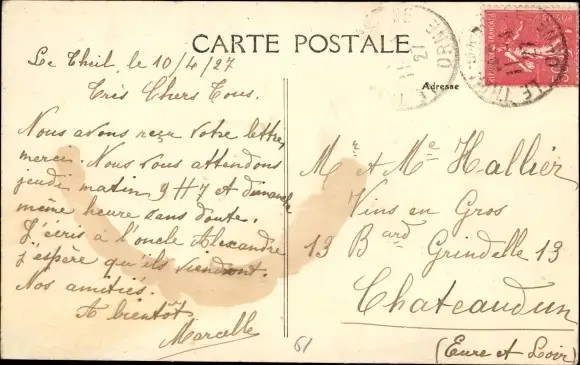 CARTE POSTALE
Le Theil, le 10/4/27
Très Chers Tous.
Nous avons reçu votre lettre,
merci. Nous vous attendons
jeudi matin 9H7 et dimanche
même heure sans doute.
J'écris à l'oncle Alexandre
j'espère qu'ils viendront.
Nos amitiés.
A bientôt
Marcelle
Adresse
Mr et Me Hallier
Vins en Gros
13 Bard Grindelle 13
Chateaudun
(Eure et Loir)
61
ORNE